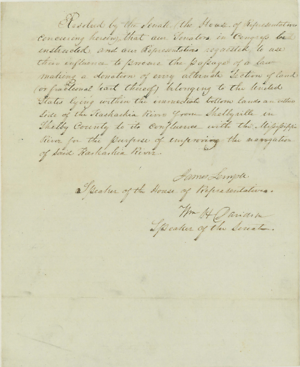 Resolved by the Senate, the House of Representatives
concurring herein, that our Senators in Congress be
instructed, and our Representatives requested to use
their influence to procure the passage of a law
making a donation of every alternate Section of land
(or fractional part thereof) belonging to the United
States lying within the overflowed bottom lands on either
side of the Kaskaskia River from Shelbyville in
Shelby County to its confluence with the Mississippi
River for the purpose of improving the navigation
of said Kaskaskia River.
James Semple
Speaker of the House of Representatives.
Wm H. Davidson
Speaker of the Senate.